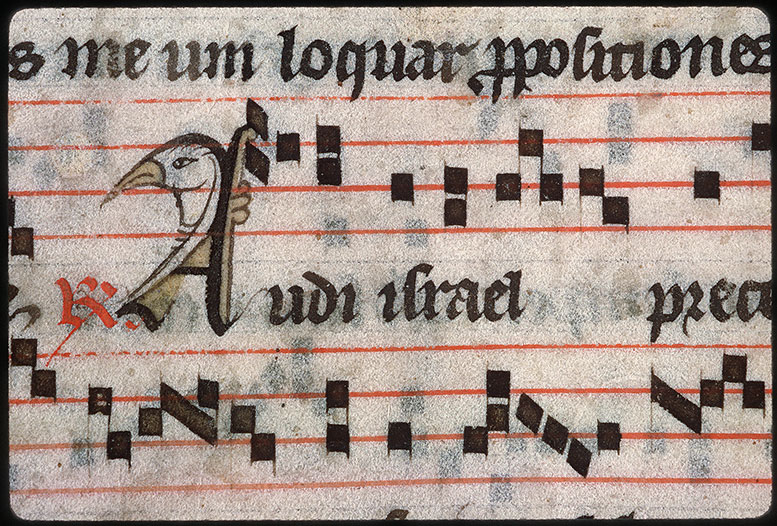 s me um loquar ꝓpositiones
℟. Audi israel prece